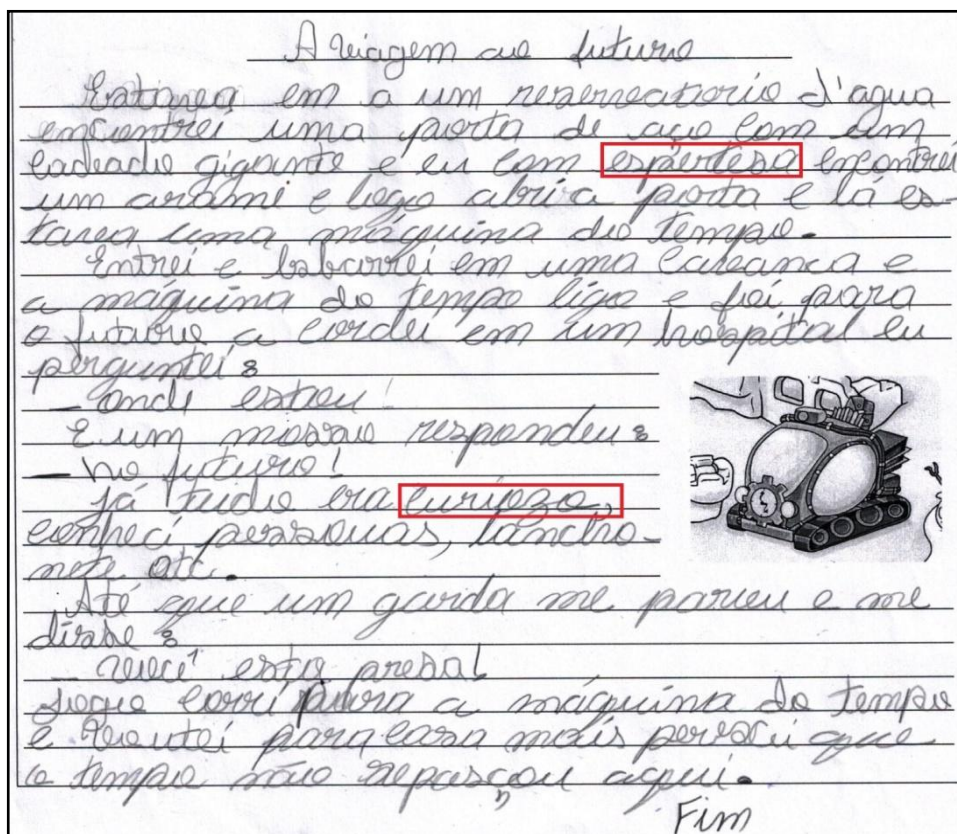 A viagem ao futuro
Estava em a um reservatorio d'agua
encontrei uma porta de aço com um
cadeado gigante e eu com espertesa encontrei
um arami e logo abri a porta e lá es-
tava uma máquina do tempo.
Entrei e isbarrei em uma lavanca e
a máquina do tempo ligo e foi para
o futuro a cordei em um hospital eu
perguntei:
- onde estou!
E um mosso respondeu:
- no futuro!
já tudo era curiozo,
conheci pessouas, lancho-
nete etc.
Até que um garda me pareu e me
disse:
- você esta presa!
Logo corri para a máquina do tempo
e voutei para casa mais persebi que
o tempo não se pasçou aqui.
Fim